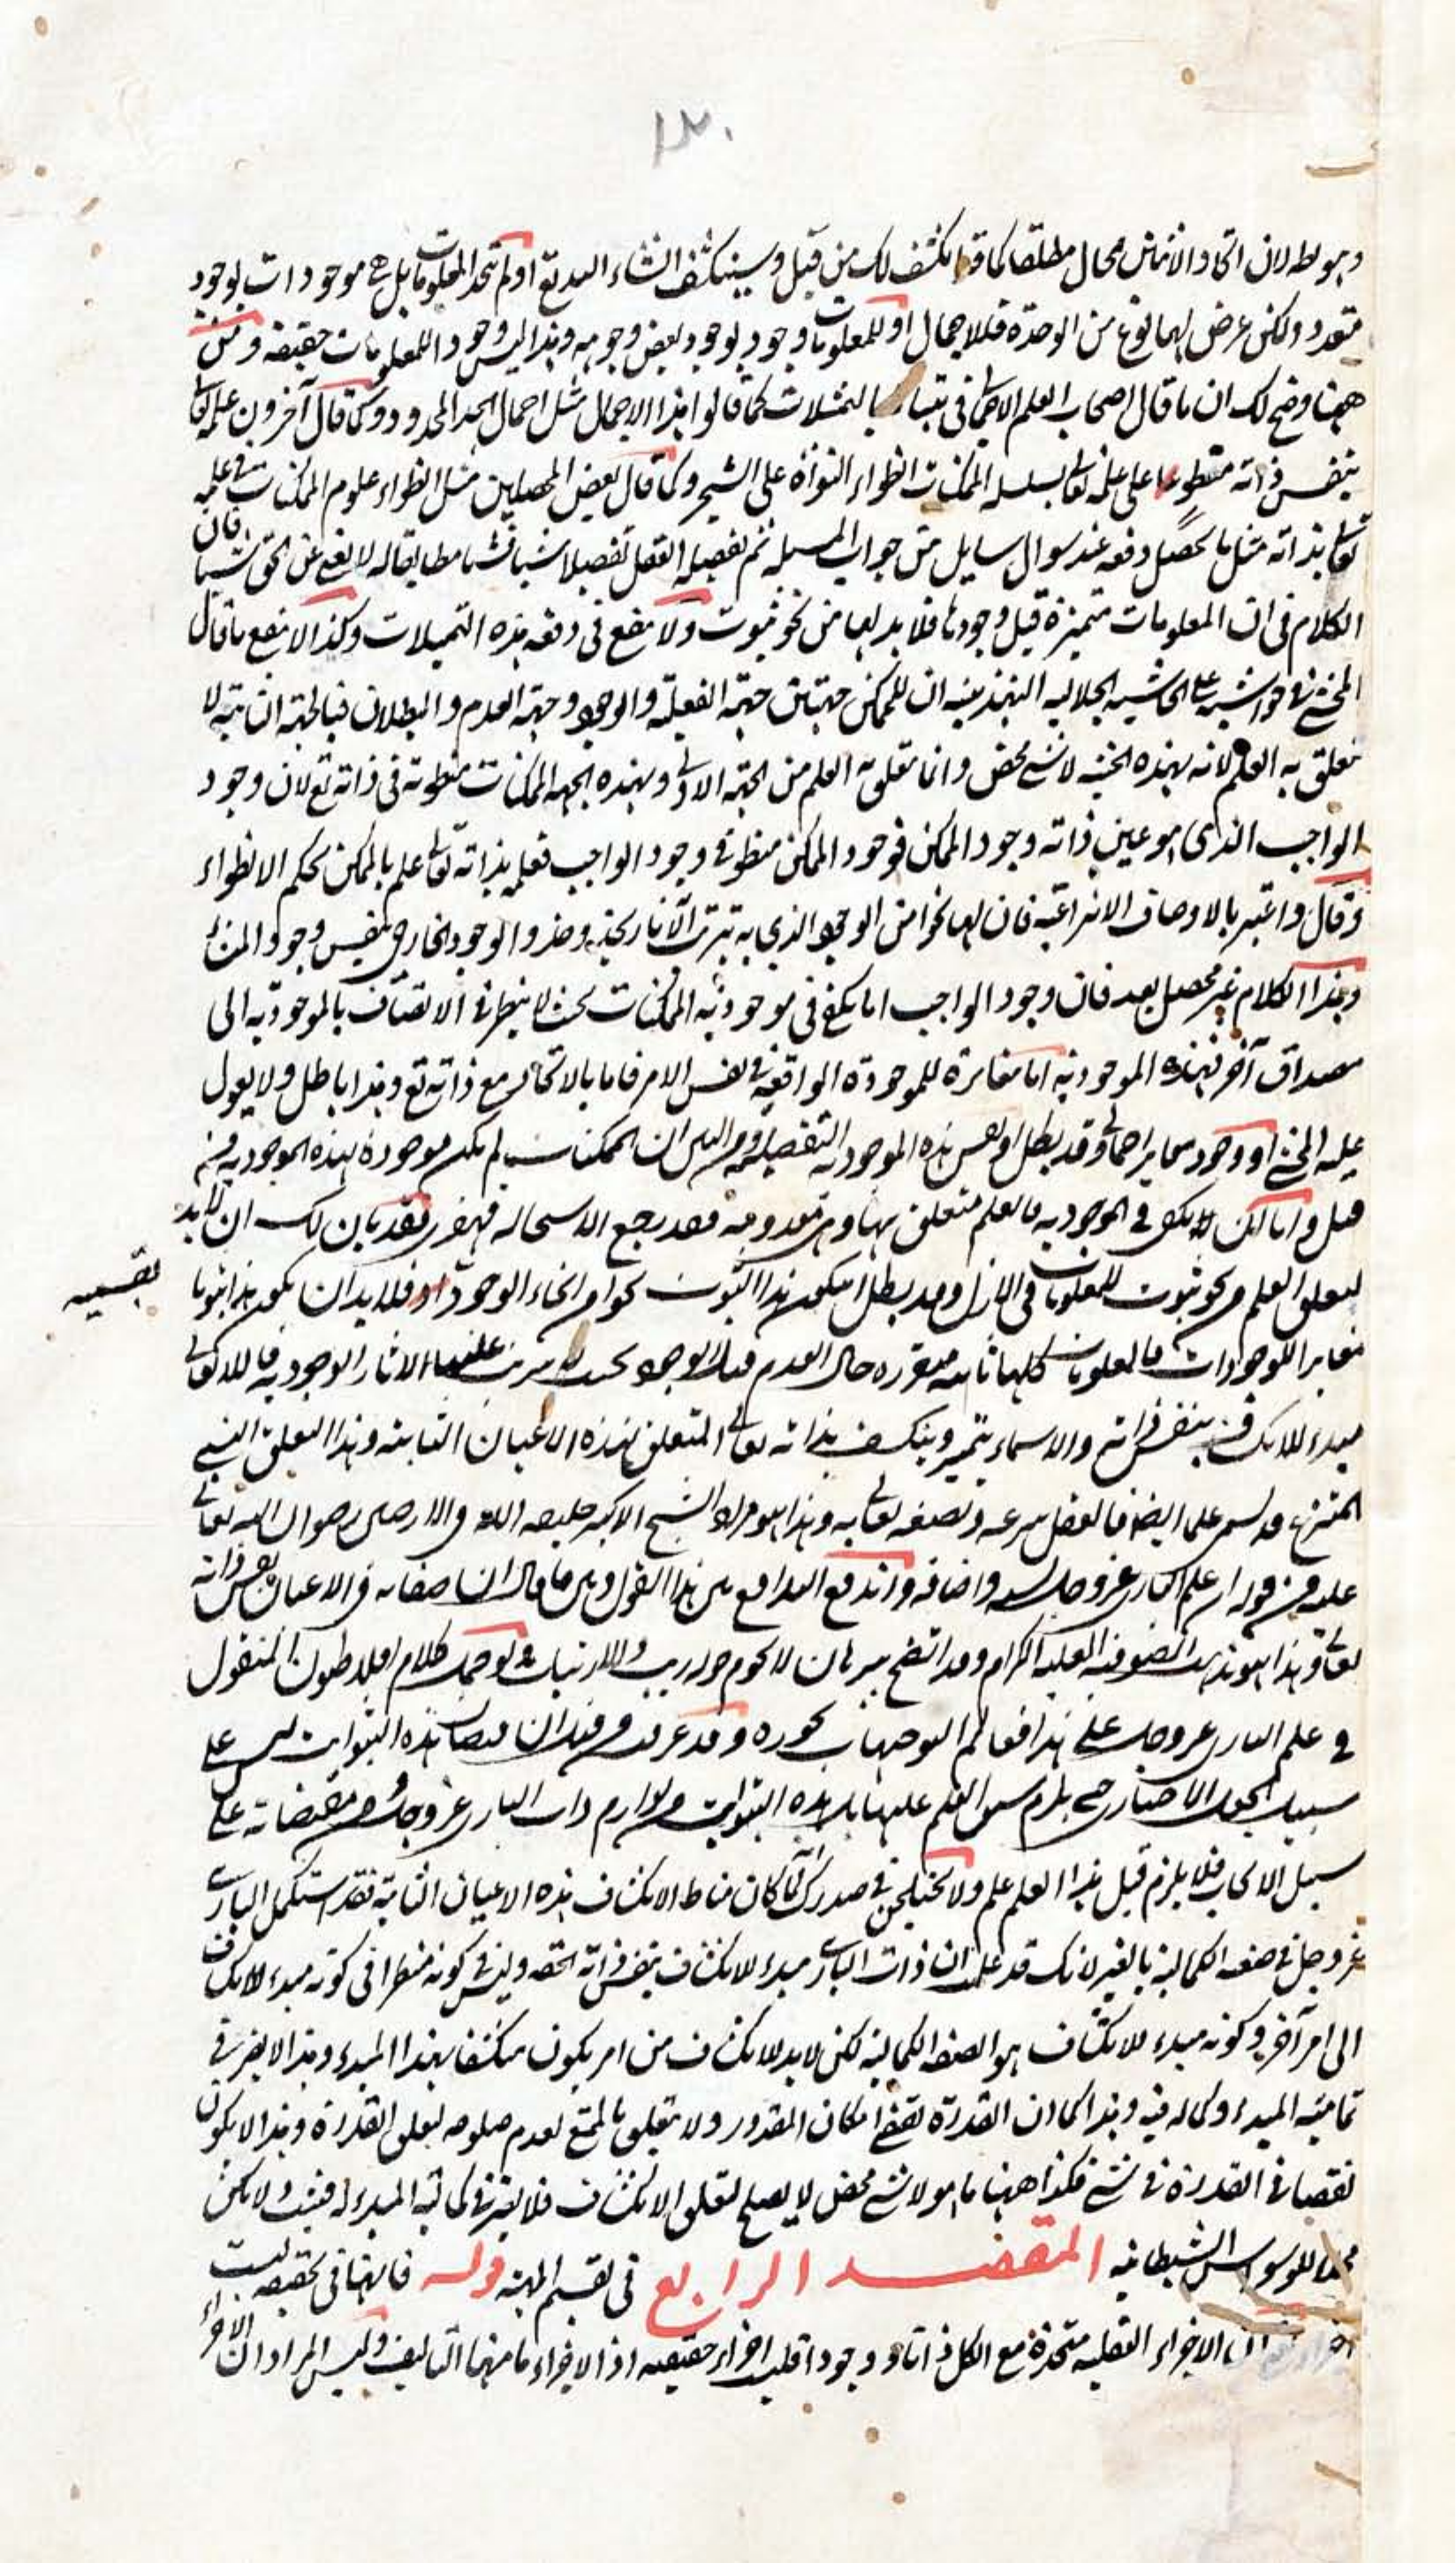 ١٣٠
وهو باطل لان اتحاد الاثنين محال مطلقا كما قد انكشف لك من قبل وسينكشف انشاء الله تع او لم تتحد المعلومات بل هي موجودات بوجود
متعدد ولكن عرض لها نوع من الوحدة فللاجمال او للمعلومات وجود بوجود بعض وجوهه وهذا ليس وجود اللمعلومات حقيقة ومن
ههنا وضح لك ان ما قال اصحاب العلم الاجمالي في بالتمثيلات كما قالوا هذا الاجمال مثل اجمال الحد المحدود وكما قال آخرون علمه تعالى
بنفس ذاته منطو على علمه تعالى بسلسلة الممكنات انطواء النواة على الشجر وكما قال بعض المحصلين مثل انطواء علوم الممكنات في علمه
تعالى بذاته مثل ما يحصل دفعة عند سوال سايل من جواب المسئلة ثم تفصيله العقل تفصيلا شيأ فشيأ مطابقا له لا يغني عن الحق شيأ فان
الكلام في ان المعلومات متميزة قبل وجودها فلا بد لها من نحو ثبوت ولا ينفع في دفعه هذه التمثيلات وكذا لا ينفع ما قال
المحشي في حواشيه على الحاشيه الجلاليه التهذيبيه ان للممكن جهتين جهة الفعلية والوجود وجهة العدم والبطلان فبالجهة الثانية لا
تعلق به العلم لانه بهذه الحيثية لا شي محض وانما تعلق به العلم من الجهة الاولى وبهذه الجهة الممكنات منطوية في ذاته تع لان وجود
الواجب الذي هو عين ذاته وجود الممكن فوجود الممكن منطو في وجود الواجب فعلمه بذاته تعالى علم بالممكن بحكم الانطواء
وقال واعتبر بالاوصاف الانتزاعية فان لها نحوا من الوجود الذي به تترتب الآثار وهذا الوجود الخارجي بنفس وجود المنشأ
وهذا الكلام غير محصل بعد فان وجود الواجب اما يكفي في موجودية الممكنات بحيث لا ينتظر في الاتصاف بالموجودية الى
مصداق آخر فهذه الموجودية اما مغايرة للموجودة الواقعية في نفس الامر فاما بالاتحاد مع ذاته تع وهذا باطل ولا يعول
عليه المحشي او وجود مغاير اجمالي وقد بطل او نفس هذه الموجودية التفصيلية ومن البين ان الممكنات لم تكن موجودة بهذه الموجودية من
قبل واما ان لا يكفي في الموجودية فالعلم متعلق بها وهي معدومة فقد رجع الاستحاله فقد بان لك ان لابد
تقسيم
لتعلق العلم من نحو ثبوت للمعلومات في الازل وقد بطل ان يكون هذا الثبوت نحوا من انحاء الوجود فلابد ان يكون هذا ثبوتا
مغايرا للوجودات فالمعلومات كلها ثابتة متقررة حال العدم قبل الوجود بحيث لا يترتب عليها الاثار الوجودية فالله تعالى
مبدء للانكشاف بنفس ذاته والاسماء يتميز وينكشف بذاته تعالى المتعلق بهذه الاعيان الثابتة وهذا التعلق النسبي
المنتزع قد يسمى علما ايضا فالعقل ينتزعه ويصفه تعالى به وهذا هو مراد الشيخ الاكبر خليفة الله في الارضين رضوان الله تعالى
عليه من قوله ان علم الباري عز وجل نسبة واضافة واندفع التدافع بين هذا القول وبين ما قال ان صفاته في الاعيان نفس ذاته
تعالى وهذا هو مذهب الصوفية العلية الكرام وقد اتضح ببرهان لا يحوم حوله ريب ولا ارتياب ولو حمل كلام افلاطون المنقول
في علم الباري عز وجل على هذا فعالم التوجيهات نحوره وقد عرفت من قبل ان هذه الثبوات ليس على
سبيل الجعل الاختياري حتى يلزم سبق العلم عليها بل هذه الثبوات من لوازم ذات الباري عز وجل ومقتضاته على
سبيل الايجاب فلا يلزم قبل هذا العلم علم ولا يختلجن في صدرك لما كان مناط الانكشاف هذه الاعيان الثابتة فقد استكمل الباري
عز وجل في صفته الكمالية بالغير لانك قد علمت ان ذات الباري مبدء للانكشاف بنفس ذاته الحقة وليس في كونه منتظرا في كونه مبدء للانكشاف
الى امر آخر وكونه مبدء للانكشاف هو الصفة الكمالية لكن لابد للانكشاف من امر يكون منكشفا بهذا المبدء وهذا لا يضر في
تمامية المبدء وكماله فيه وهذا كما ان القدرة تقتضي امكان المقدور ولا يتعلق بالممتنع لعدم صلوحه لتعلق القدرة وهذا لا يكون
نقصا في القدرة في شئ فكذا ههنا ما هو لا شئ محض لا يصلح لتعلق الانكشاف فلا يضر في كمالية المبدء له فتثبت ولا تكن
محلا للوسواس الشيطانيه المقصد الرابع في تقسيم المهية قوله فانها في تحقيقه ليست
ان الاجزاء العقليه متحدة مع الكل ذاتا ووجودا فليست اجزاء حقيقيه اذ الاجزاء ما منها التأليف وليس المراد ان الاجزاء